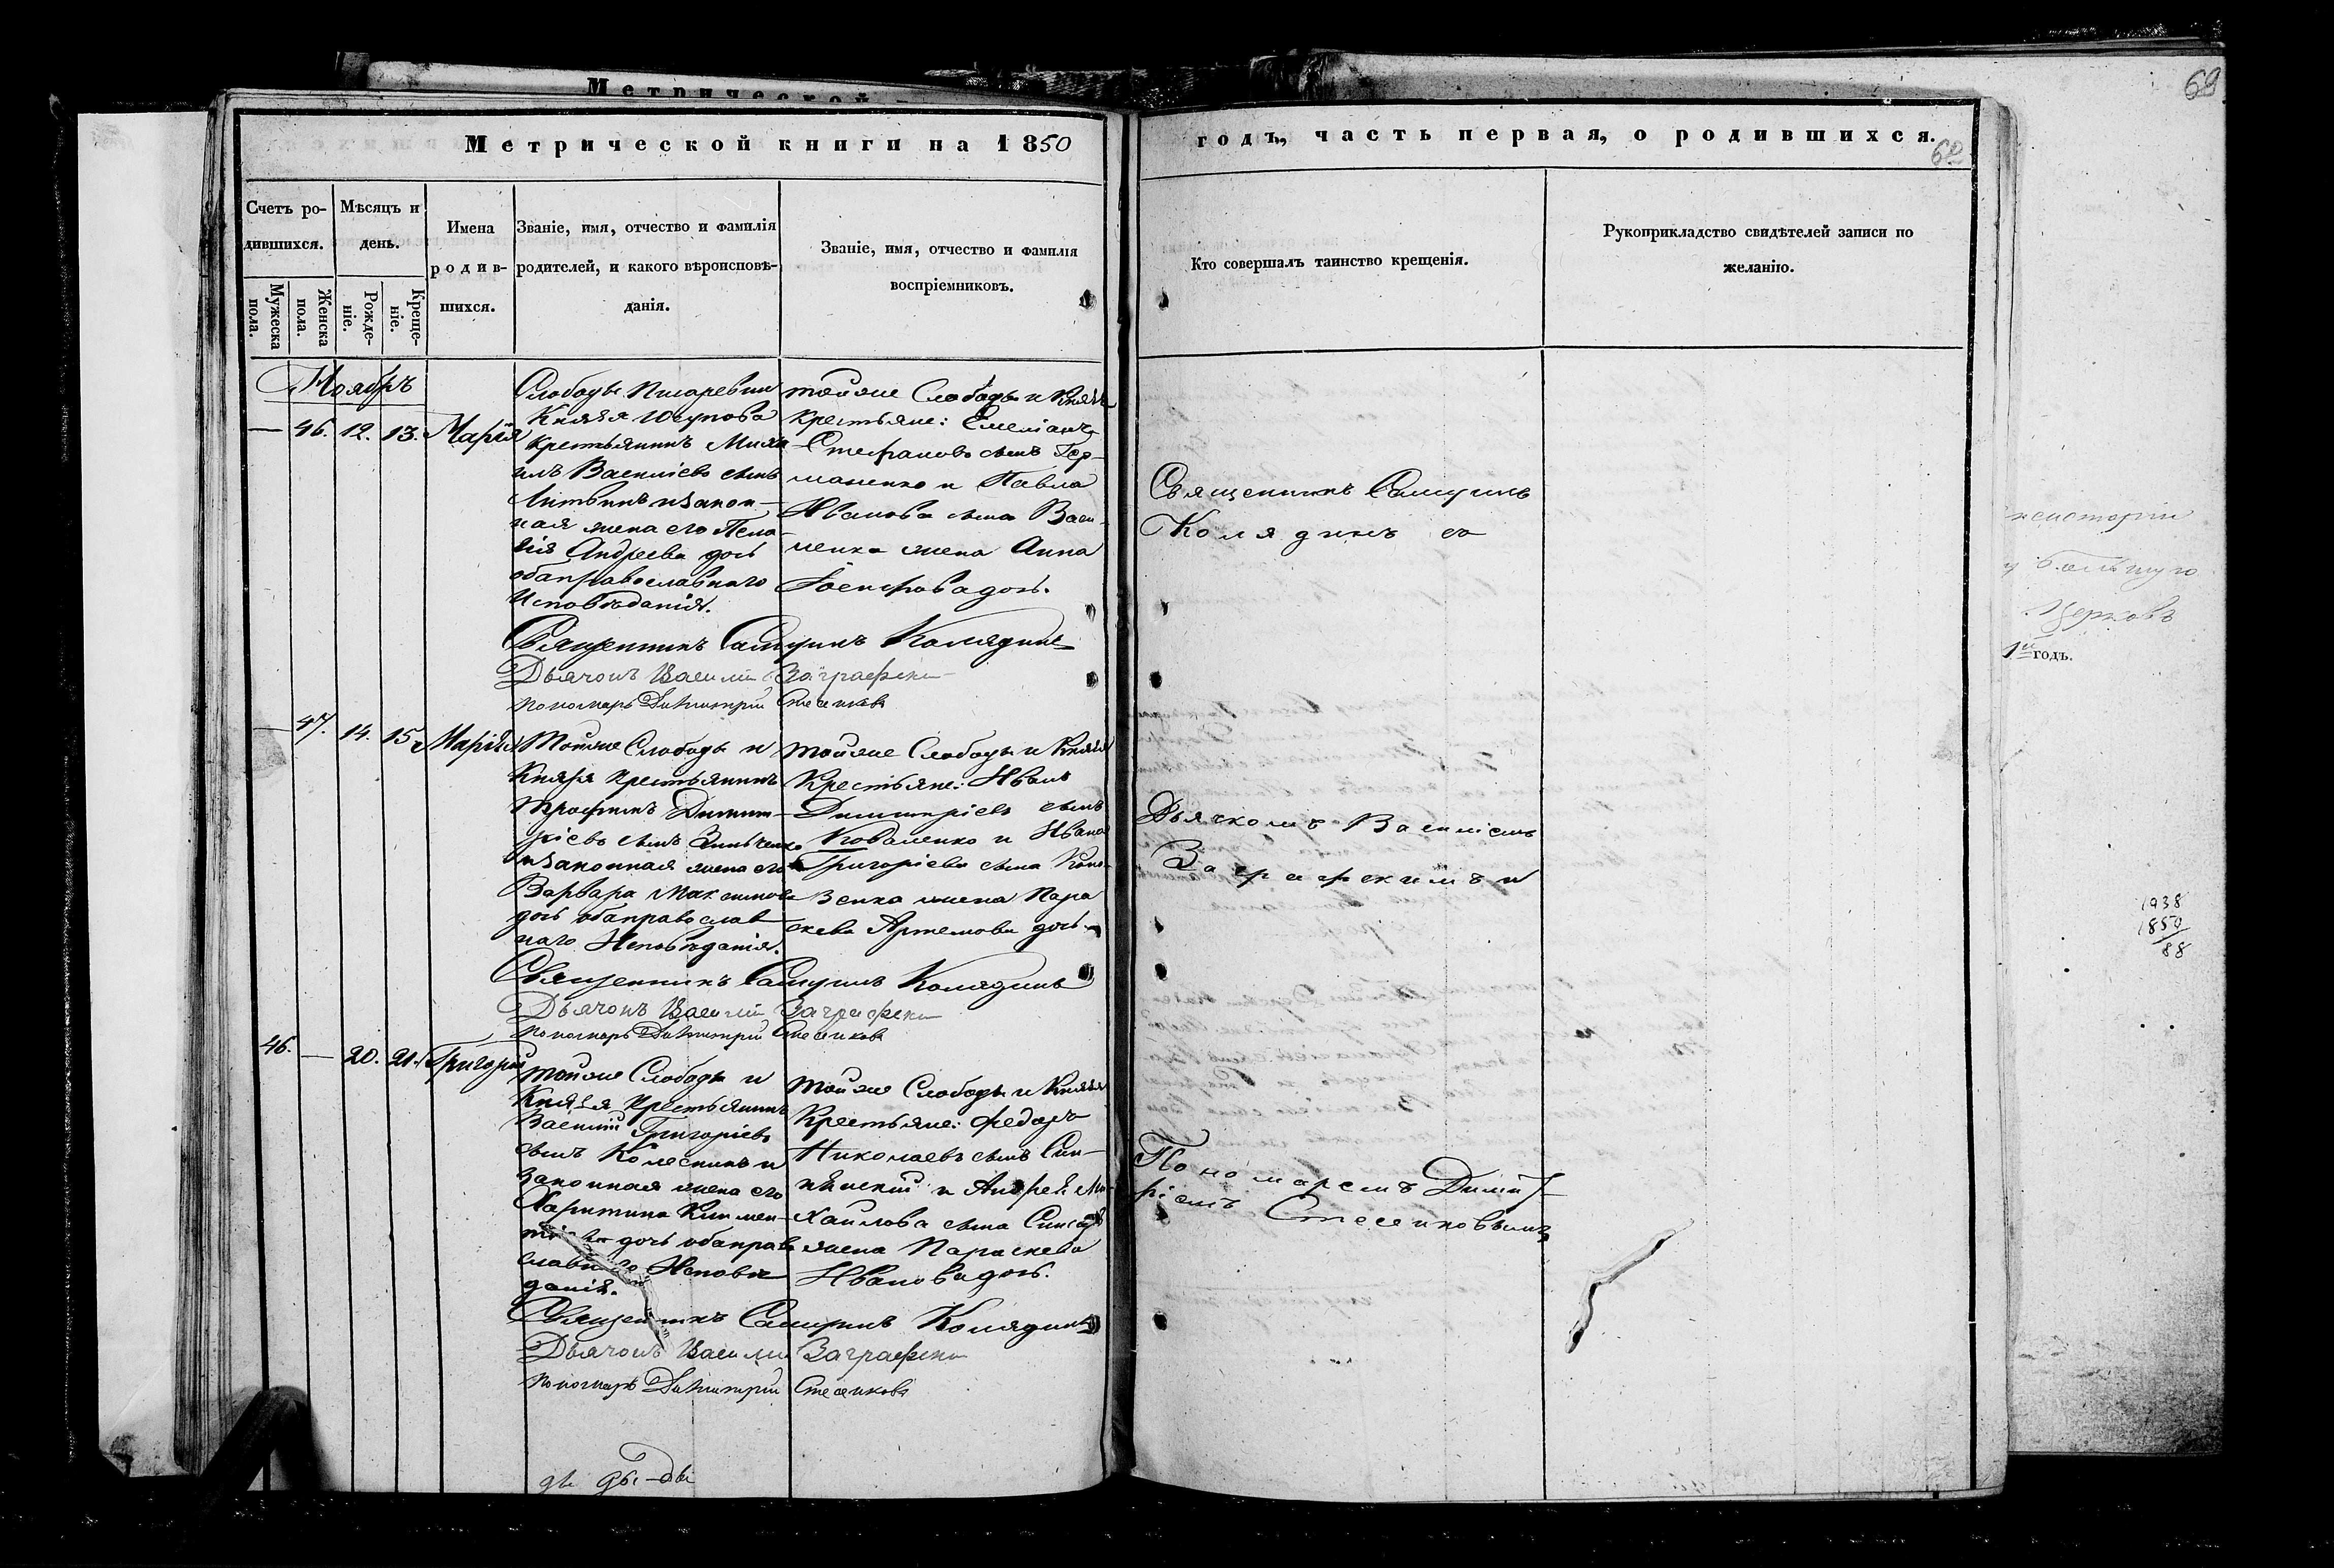 Метрической
Метрической книги на 1850
годъ, часть первая, о родившихся.
69
62
Счетъ ро-
дившихся.
Мужеска
пола.
Женска
пола.
Мѣсяцъ и
день.
Рожде-
ніе.
Креще-
ніе.
Имена
родив-
шихся.
Званіе, имя, отчество и фамилія
родителей, и какого вѣроисповѣ-
данія.
Званіе, имя, отчество и фамилія
воспріемниковъ.
Кто совершалъ таинство крещенія.
Рукоприкладство свидѣтелей записи по
желанію.
Ноябрь
— 46. 12. 13. Марія
Слободы Писаревки
Князя Юсупова
крестьянинъ Миха
илъ Василіевъ сынъ
Литвинъ и закон-
ная жена его Пела
гія Андреева дочь
оба православнаго
Исповѣданія.
тойже Слободы и Князя
крестьяне: Емеліанъ
Стефановъ сынъ Гер-
маненко и Павла
Иванова сына Васи-
ленка жена Анна
дочь.
Священникъ Самуилъ Колядинъ
Дьячокъ Василій Заграфскій
пономарь Димитрій Стесенковъ
Священникъ Самуилъ
Колядинъ съ
— 47. 14. 15. Марія
Тойже Слободы и
Князя крестьянинъ
Трофимъ Димит-
ріевъ сынъ Зинченко
и законная жена его
Варвара Максимова
дочь оба православ
наго Исповѣданія.
тойже Слободы и Князя
Крестьяне: Иванъ
Димитріевъ сынъ
Коваленко и Ивана
Григоріева сына Коно-
венка жена Пара
скева Артемова дочь.
Священникъ Самуилъ Колядинъ
Дьячокъ Василій Заграфскій
пономарь Димитрій Стесенковъ
Дьячкомъ Василіемъ
Заграфскимъ и
46. — 20. 21. Григорій
тойже Слободы и
Князя крестьянинъ
Василій Григоріевъ
сынъ Колесникъ и
законная жена его
Харитина Климен-
тіева дочь оба право
славнаго Исповѣ
данія.
тойже Слободы и Князя
Крестьяне: Федоръ
Николаевъ сынъ
и Андрея Ми-
хаилова сына
жена Параскева
Иванова дочь.
Священникъ Самуилъ Колядинъ
Дьячокъ Василій Заграфскій
пономарь Димитрій Стесенковъ
Пономаремъ Димит-
ріемъ Стесенковымъ
Церковь
годъ.
1938
1850
88